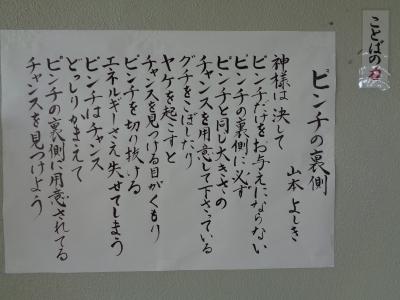 ことばの力
ピンチの裏側
山本よしき
神様は決して
ピンチだけをお与えにならない
ピンチの裏側に必ず
ピンチと同じ大きさの
チャンスを用意して下さっている
グチをこぼしたり
ヤケを起こすと
チャンスを見つける目がくもり
ピンチを切り抜ける
エネルギーさえ失せてしまう
ピンチはチャンス
どっしりかまえて
ピンチの裏側に用意されてる
チャンスを見つけよう